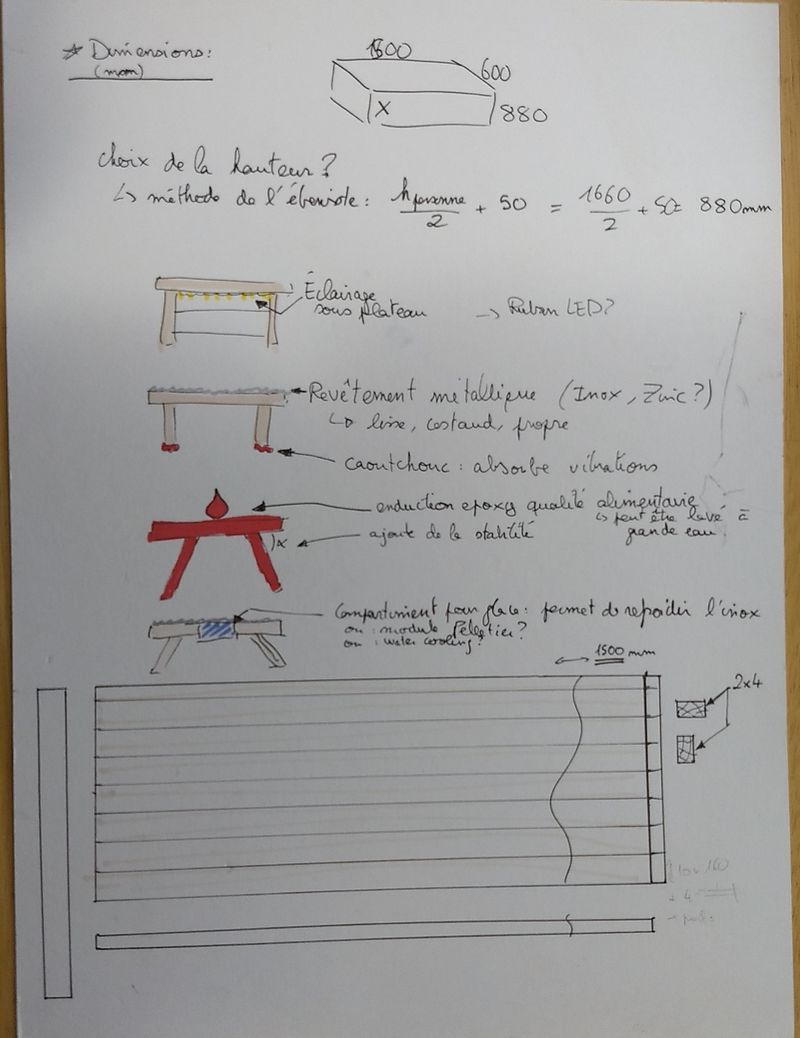 * Dimensions:
(mm)
1500
600
880
X
choix de la hauteur?
↳ méthode de l'ébéniste: h personne / 2 + 50 = 1660 / 2 + 50 = 880mm
Éclairage
sous plateau → Ruban LED?
Revêtement métallique (Inox, Zinc?)
↳ lisse, costaud, propre
caoutchouc: absorbe vibrations
enduction epoxy qualité alimentaire
↳ peut être lavé à
grande eau.
)α ajoute de la stabilité
Compartiment pour glace: permet de refroidir l'inox
ou: module Peltier?
ou: water cooling?
1500 mm
2x4